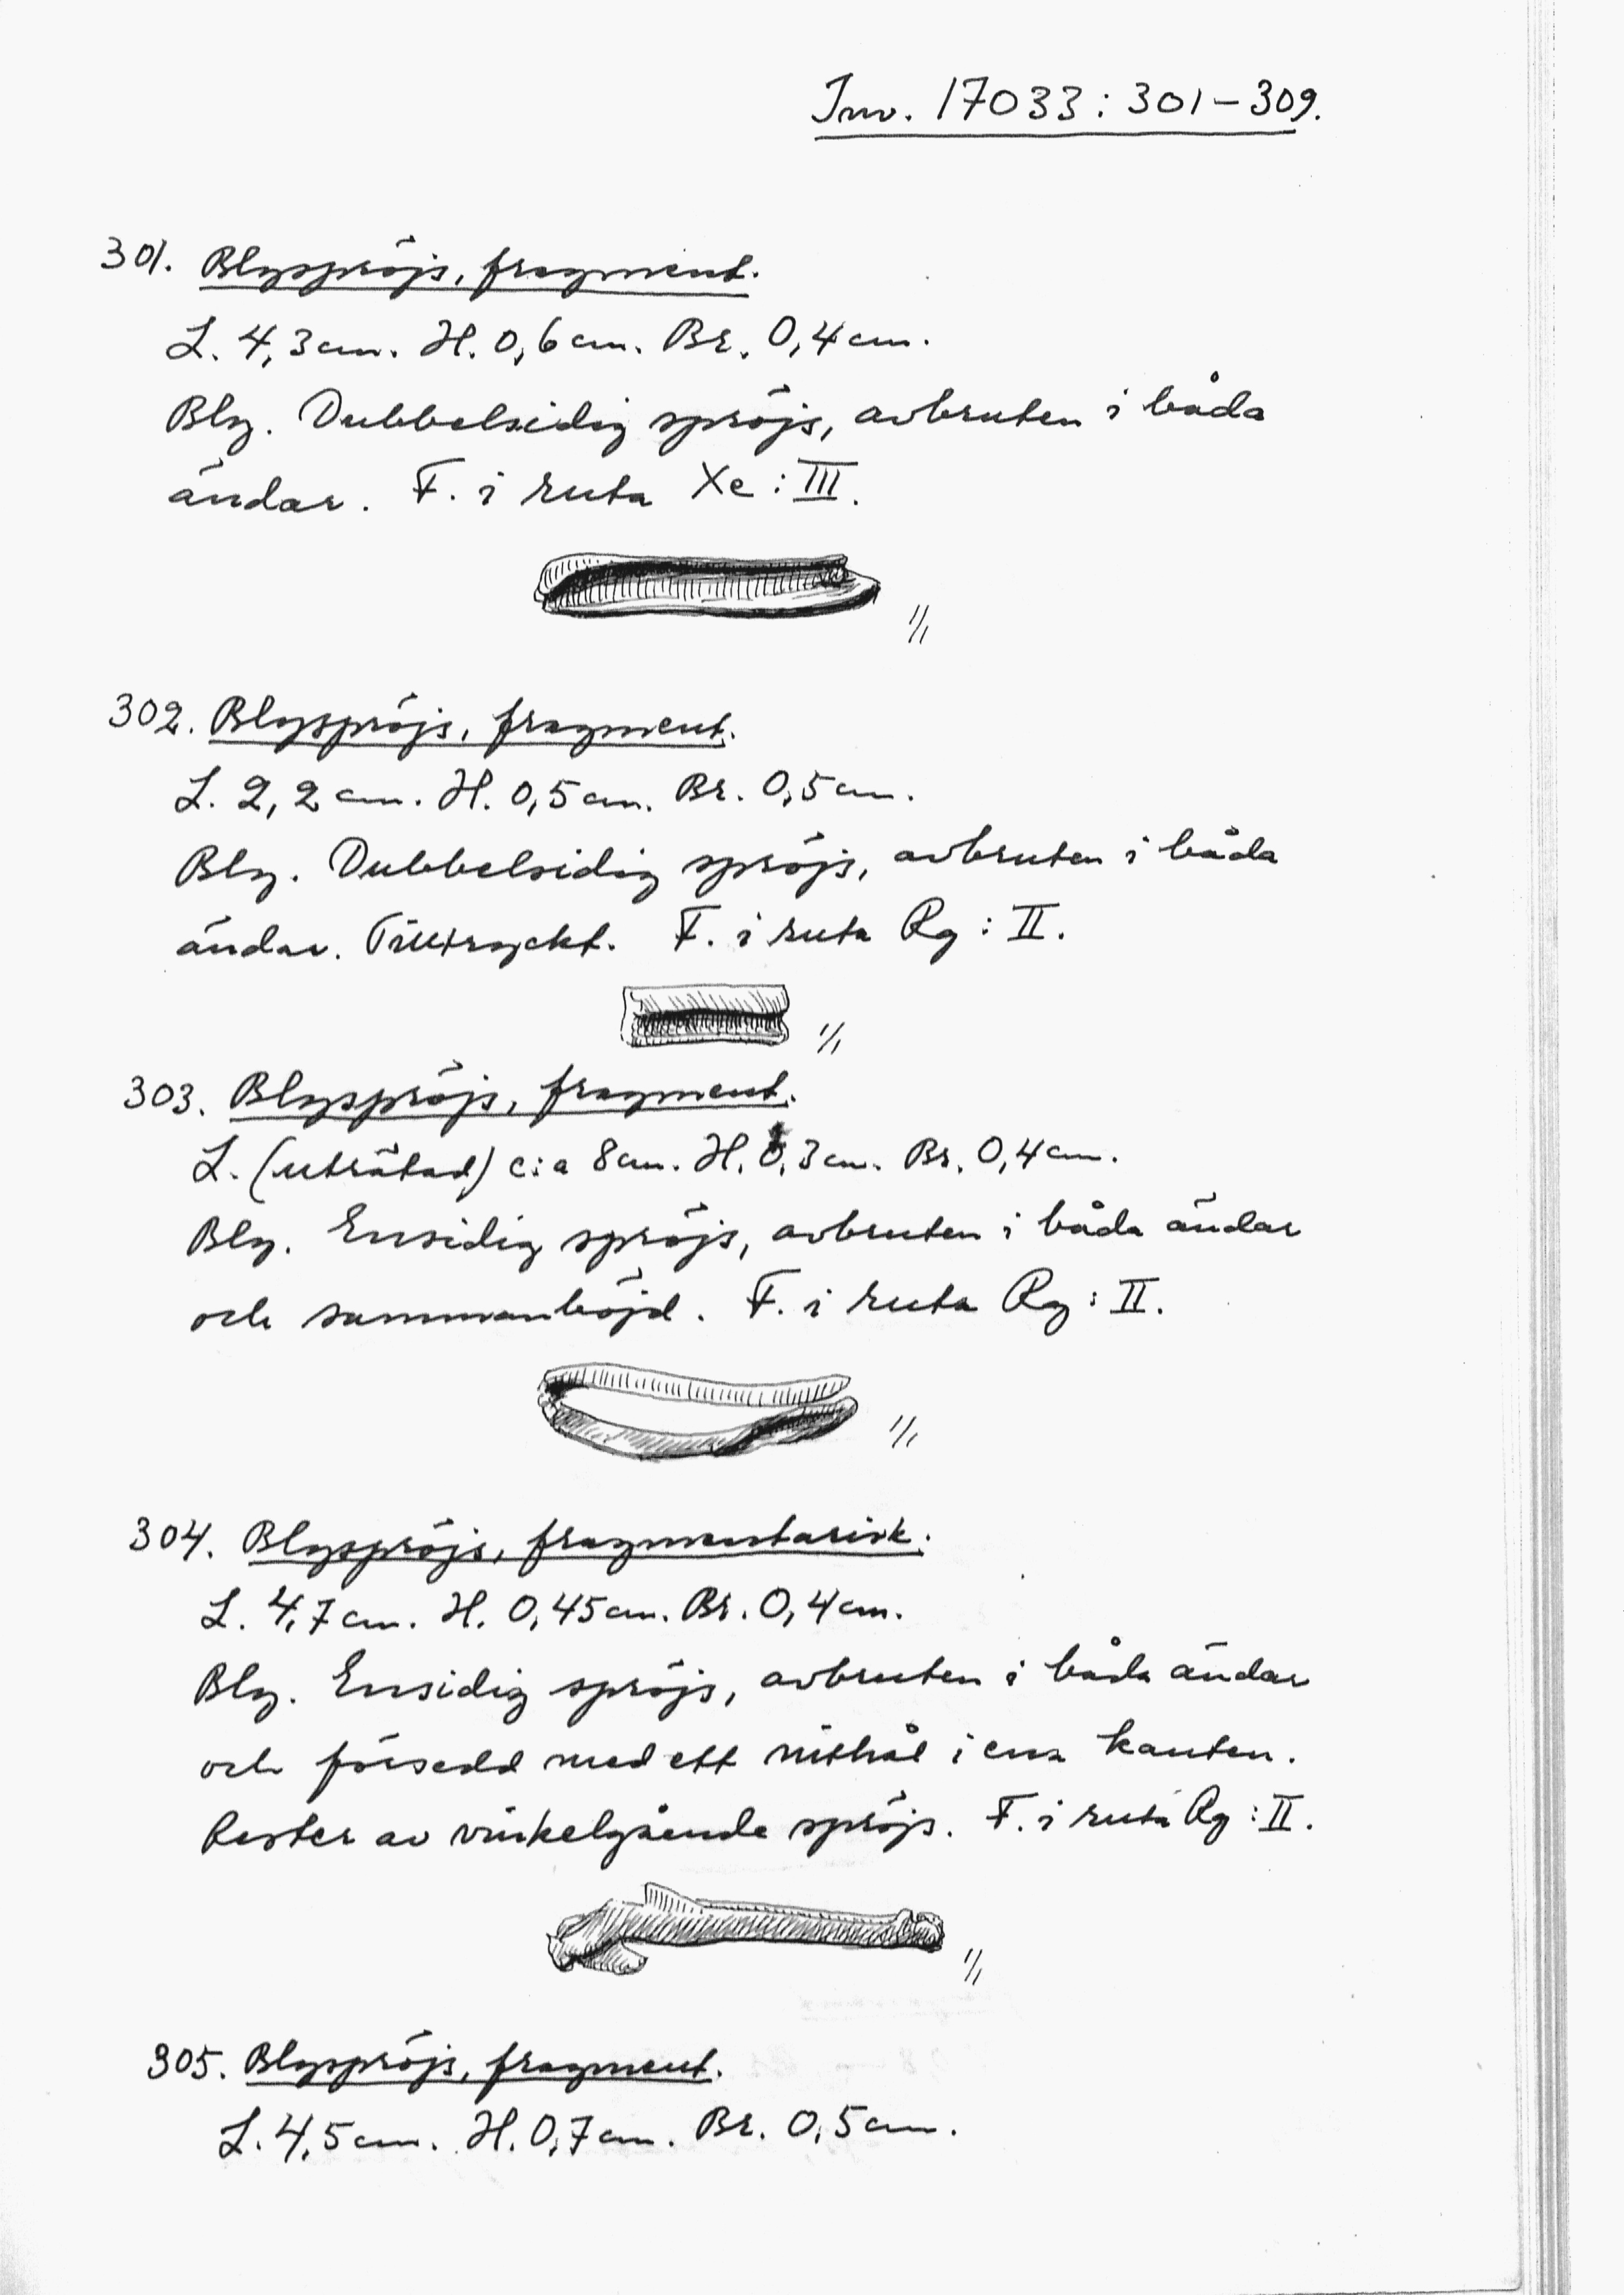 Inv. 17033:301-309.
301. Blyspröjs, fragment.
L. 4,3 cm. H. 0,6 cm. Br. 0,4 cm.
Bly. Dubbelsidig spröjs, avbruten i båda
ändar. F. i ruta Xe:III.
1/1
302. Blyspröjs, fragment.
L. 2,2 cm. H. 0,5 cm. Br. 0,5 cm.
Bly. Dubbelsidig spröjs, avbruten i båda
ändar. Tilltryckt. F. i ruta Rg:II.
1/1
303. Blyspröjs, fragment.
L. (uträtad) c:a 8 cm. H. 0,3 cm. Br. 0,4 cm.
Bly. Ensidig spröjs, avbruten i båda ändar
och sammanböjd. F. i ruta Rg:II.
1/1
304. Blyspröjs, fragmentarisk.
L. 4,7 cm. H. 0,45 cm. Br. 0,4 cm.
Bly. Ensidig spröjs, avbruten i båda ändar
och försedd med ett nithål i ena kanten.
Rester av vinkelgående spröjs. F. i ruta Rg:II.
1/1
305. Blyspröjs, fragment.
L. 4,5 cm. H. 0,7 cm. Br. 0,5 cm.